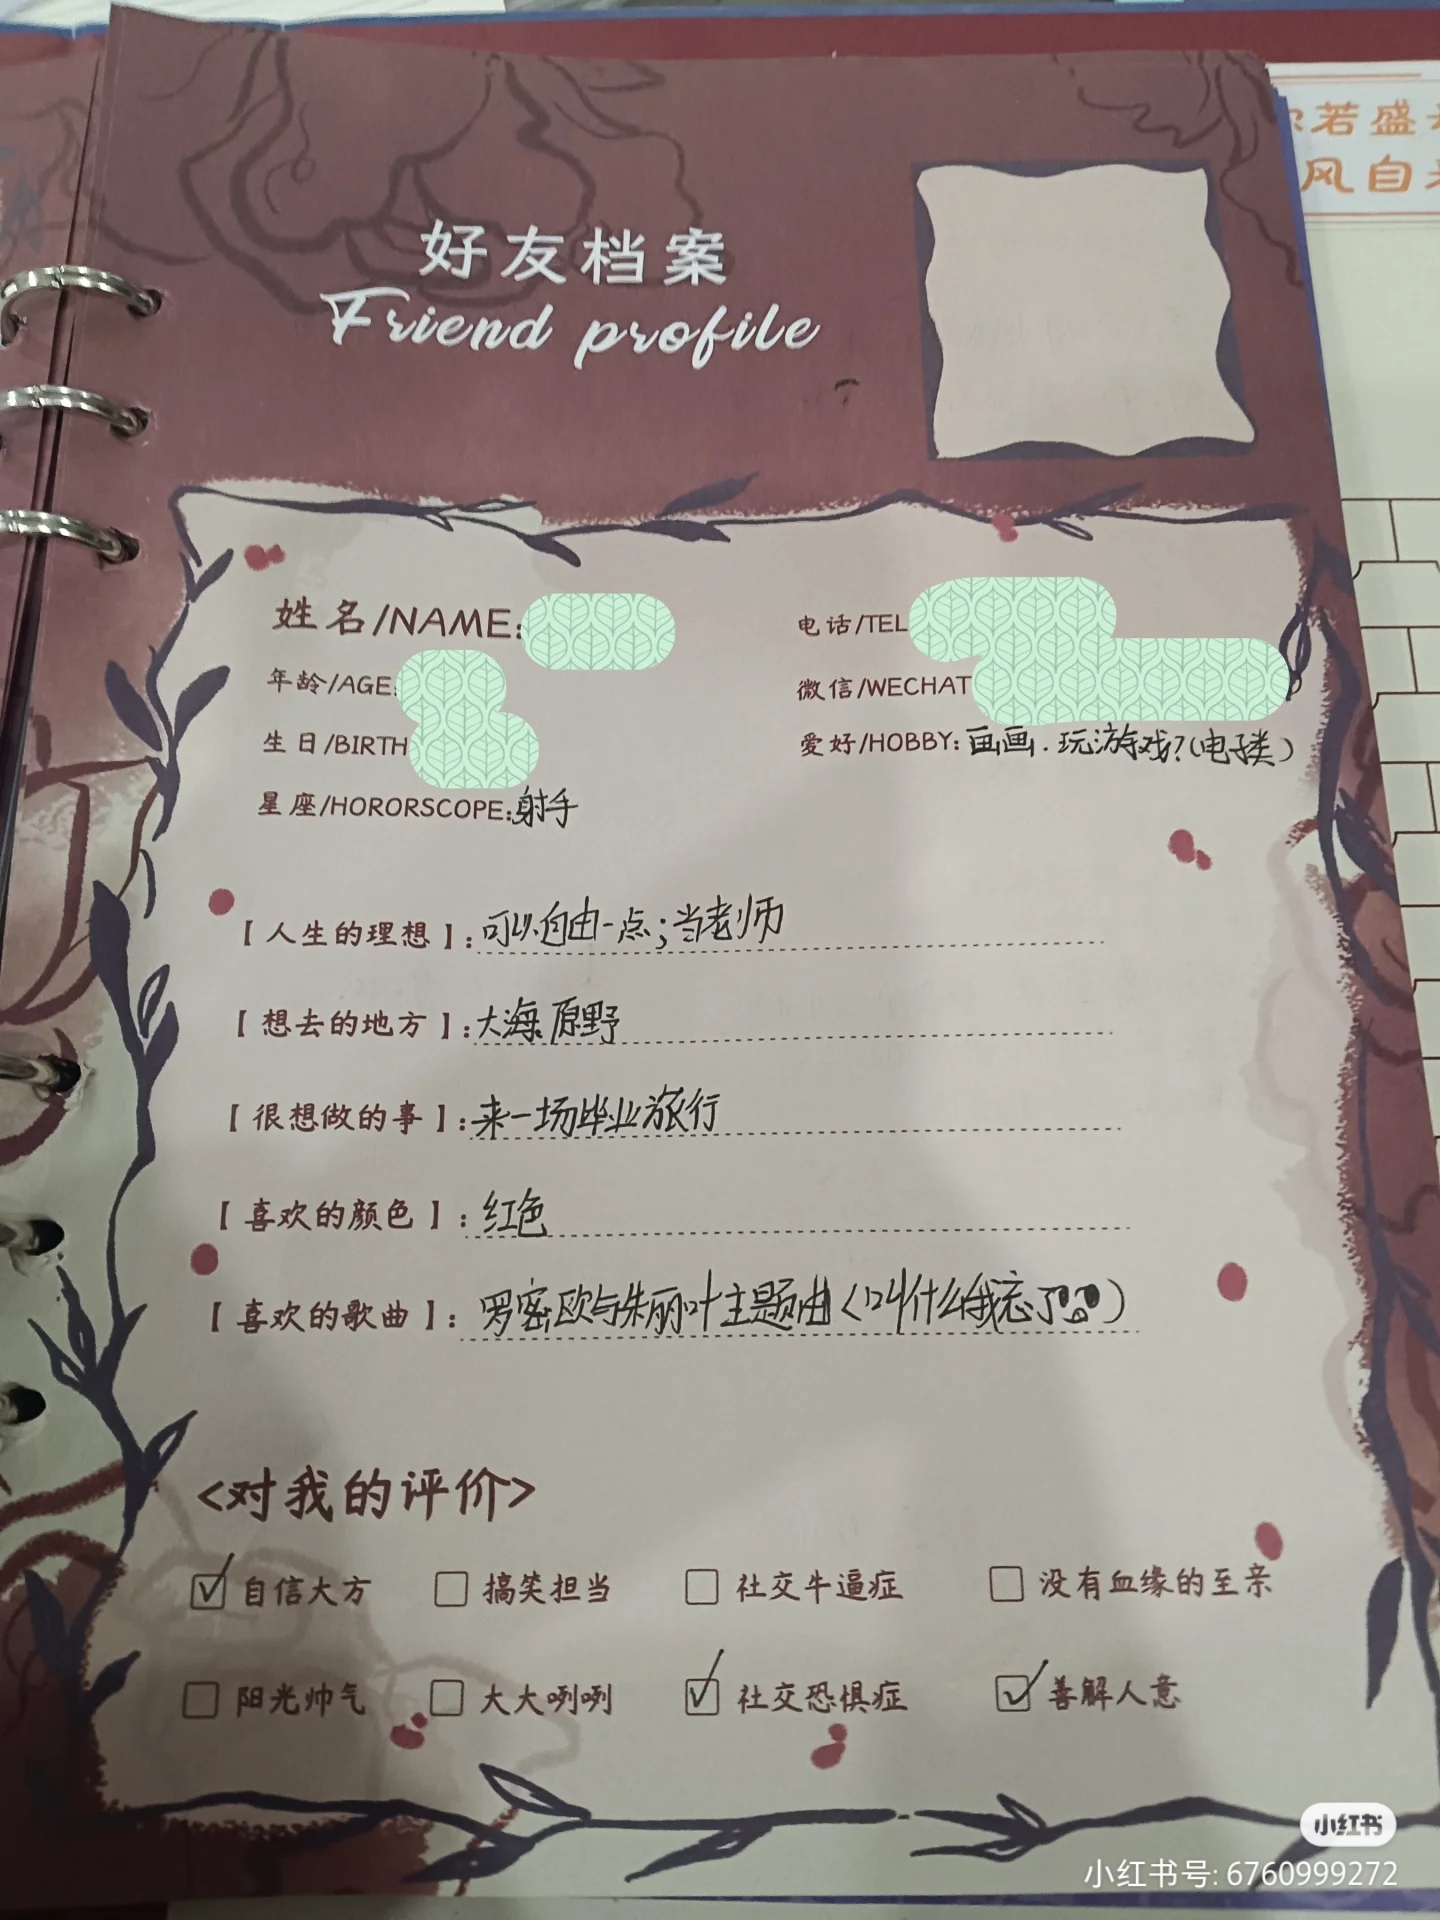 若盛
风自
好友档案
Friend profile
姓名/NAME:
电话/TEL
年龄/AGE:
微信/WECHAT
生日/BIRTH
爱好/HOBBY: 画画. 玩游戏?(电子类)
星座/HORORSCOPE: 射手
【人生的理想】: 可以自由一点; 当老师
【想去的地方】: 大海、原野
【很想做的事】: 来一场毕业旅行
【喜欢的颜色】: 红色
【喜欢的歌曲】: 罗密欧与朱丽叶主题曲(叫什么我忘了)
<对我的评价>
自信大方 搞笑担当 社交牛逼症 没有血缘的至亲
阳光帅气 大大咧咧 社交恐惧症 善解人意
小红书
小红书号: 6760999272